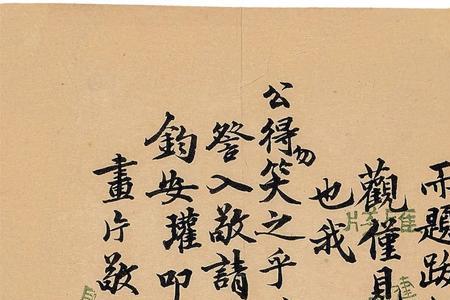 而題跋
觀僅見
也我
公得勿笑之乎
詧入敬請
鈞安瓘叩
畫片敬